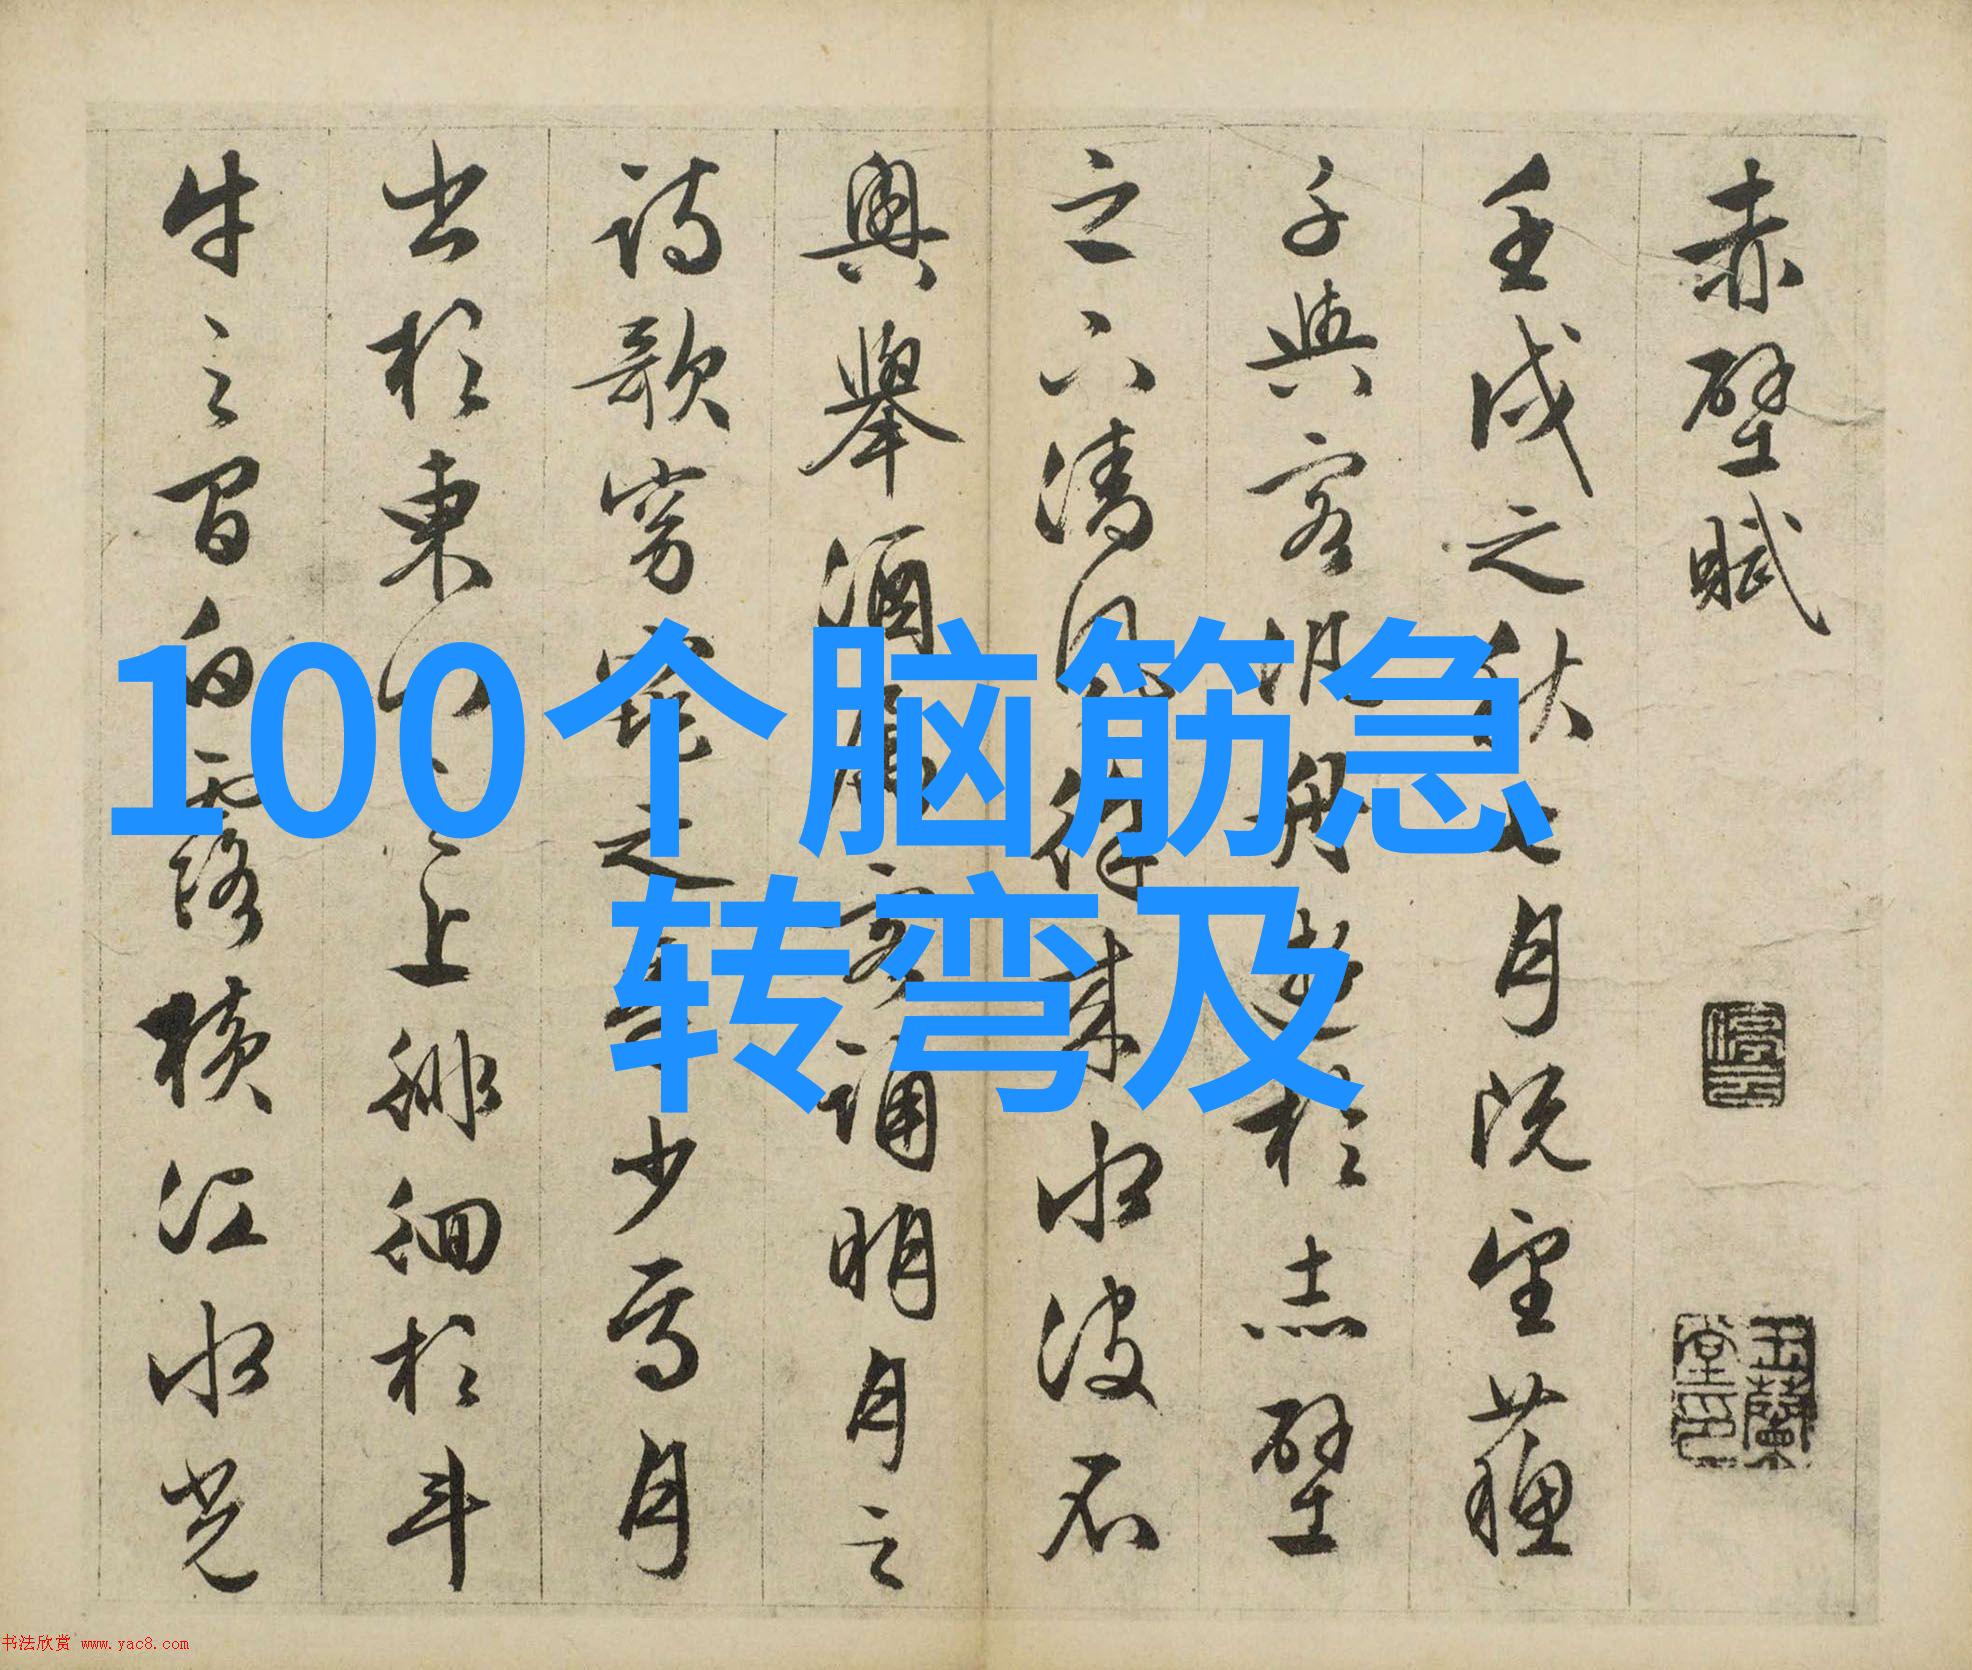 赤壁賦
停雲
玉蘭堂印
壬戌之秋七月既望蘇
子與客泛舟遊於赤壁
之下清風徐來水波不
興舉酒屬客誦明月之
詩歌窈窕之章少焉月
出於東山之上徘徊於斗
牛之間白露橫江水光
100个脑筋急
转弯及
书法欣赏 www.yac8.com